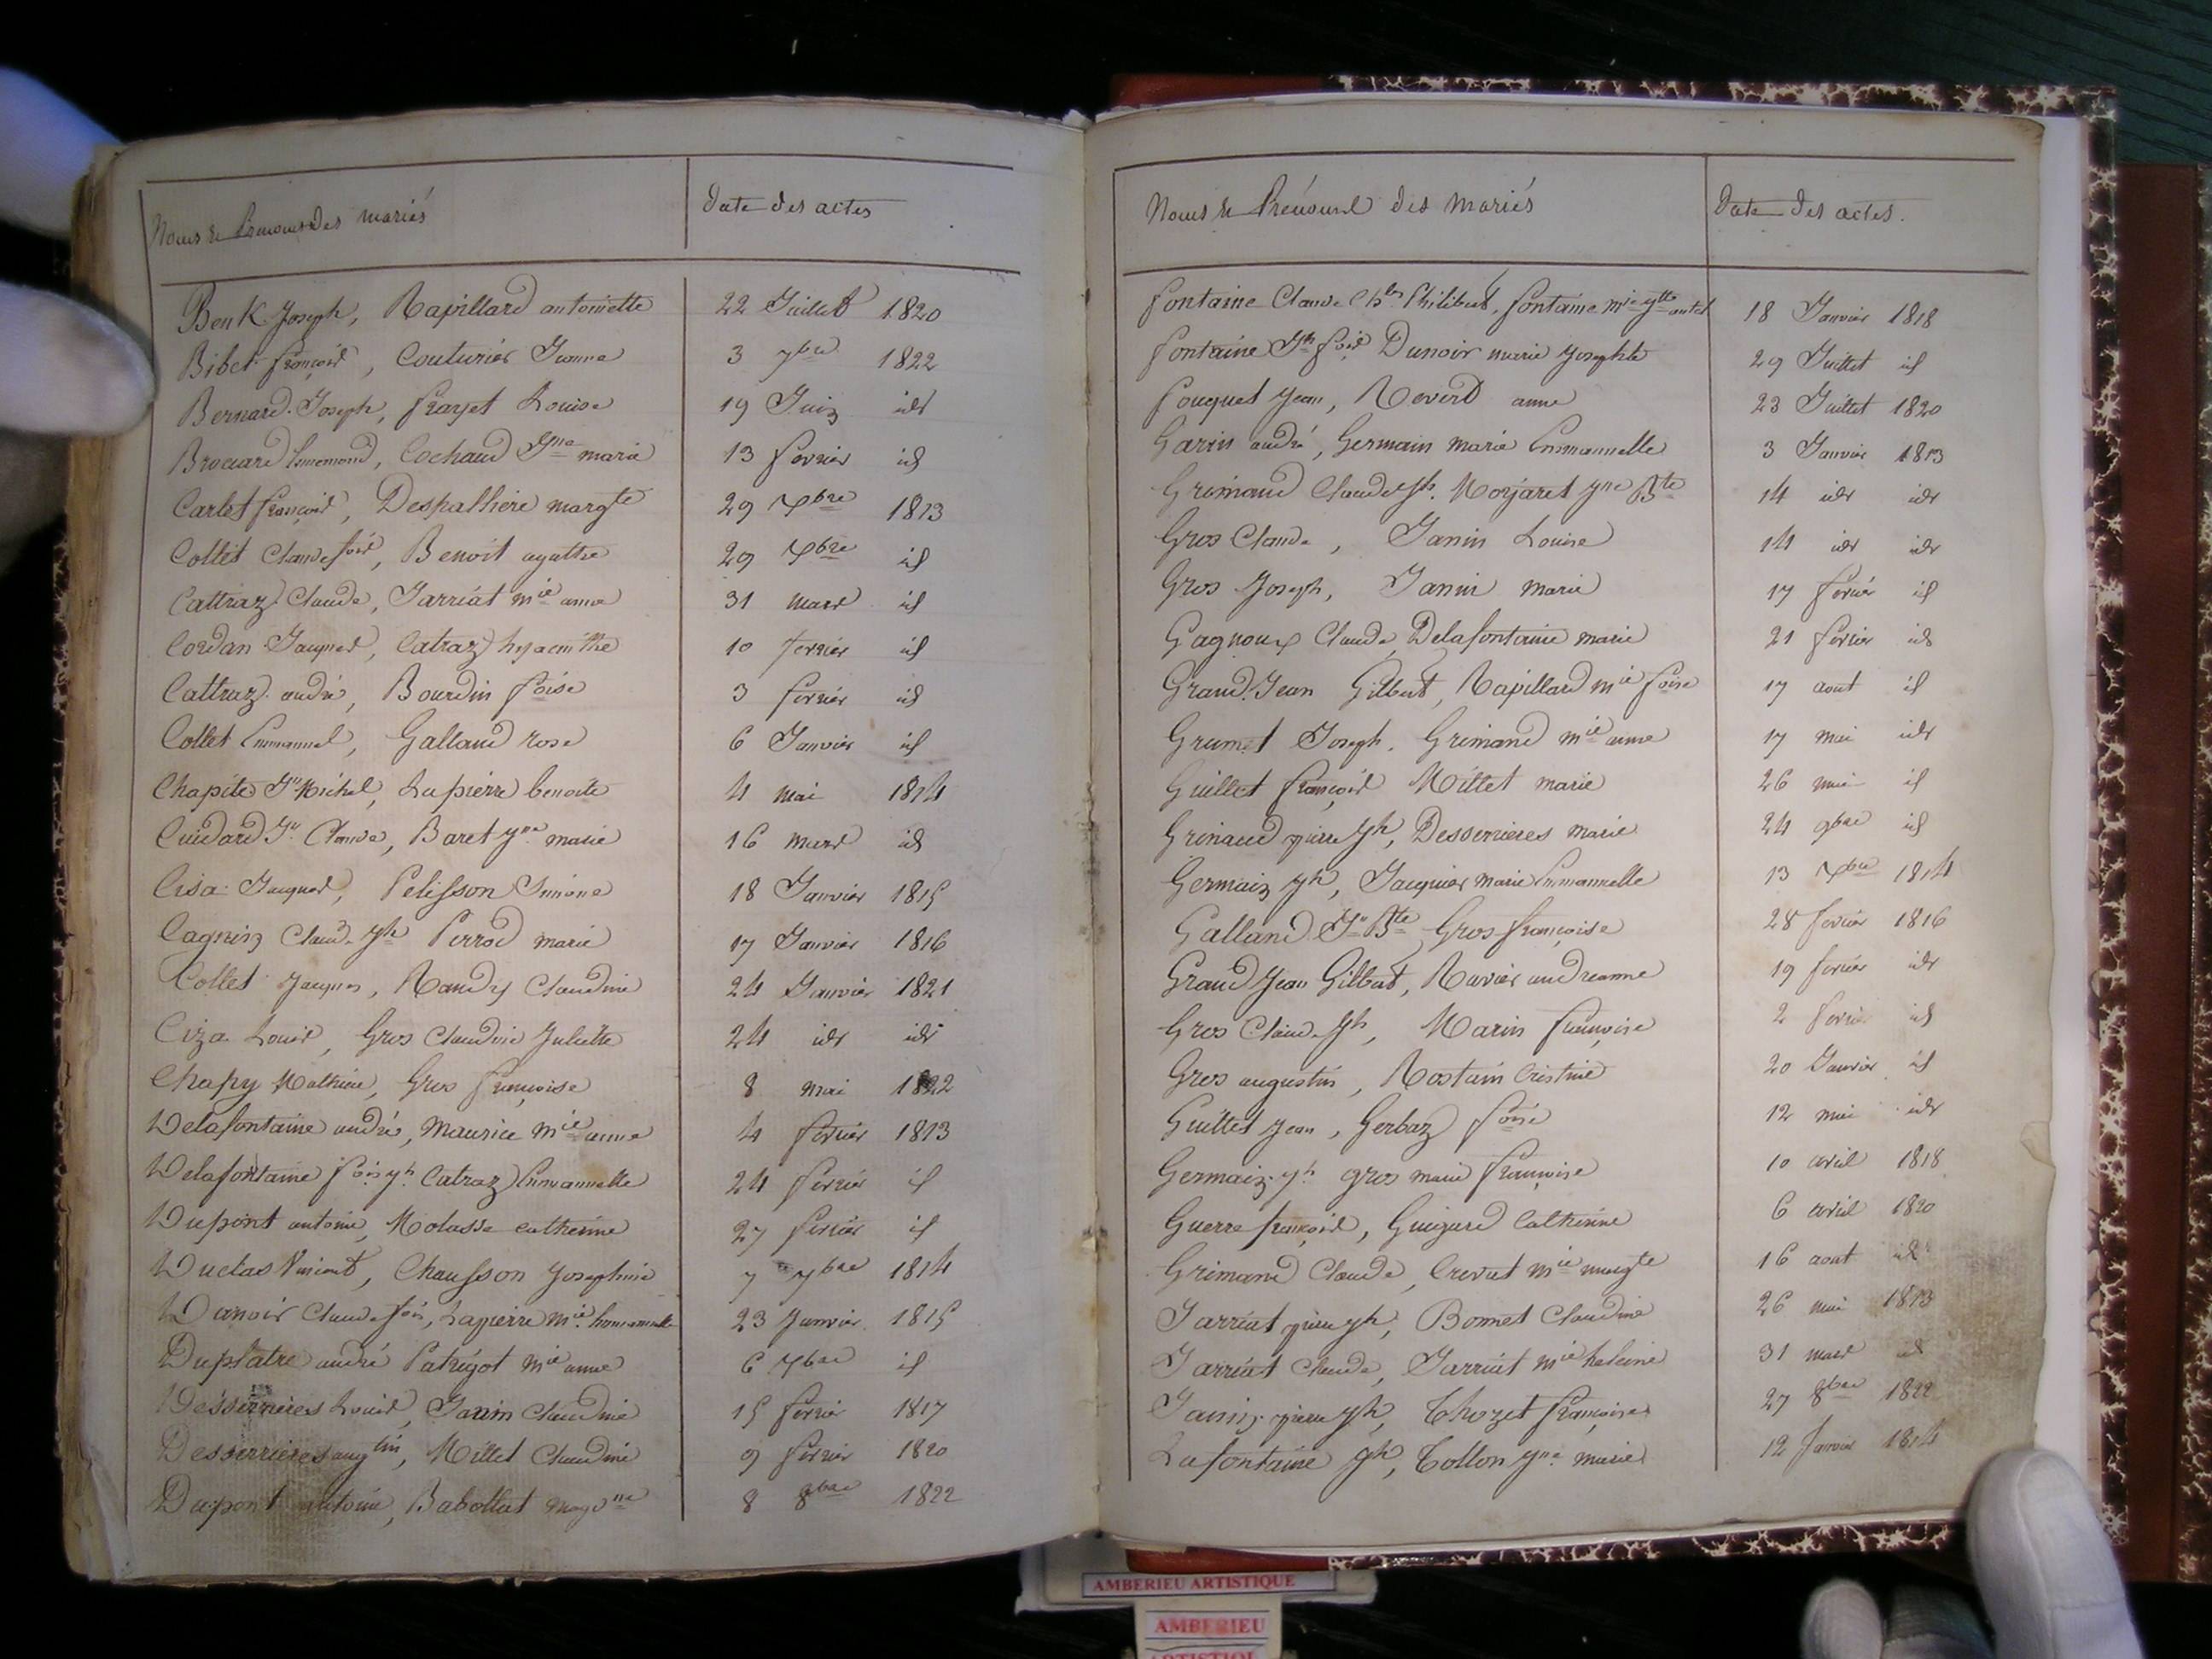 Noms & Prénoms des mariés
Date des actes
Benk Joseph, Rapillard antoinette 22 Juillet 1820
Bibet françois, Couturier Jeanne 3 7bre 1822
Bernard Joseph, frayet Louise 19 Juin idr
Brouard Ennemond, Cochaud Jne marie 13 février id
Carlet françois, Despalliere margte 29 Xbre 1813
Collet Claude fois, Benoit agathe 29 Xbre id
Cattraz Claude, Jarriat mie anne 31 mars id
Cordan Jacques, Catraz hyacinthe 10 fevrier id
Cattraz andré, Bourdin foise 3 fevrier id
Collet Emmanuel, Galland rose 6 Janvier id
Chapite Jn Michel, Lapierre benoite 4 mai 1814
Cuidard Jn Claude, Baret Jne marie 16 mars id
Cisa Jacques, Pelisson Simone 18 Janvier 1815
Cagnin Claude Jh Perrod marie 17 Janvier 1816
Collet Jacques, Randy Claudine 24 Janvier 1821
Ciza Louis, Gros Claudine Juliette 24 idr idr
Chapy Mathieu, Gros françoise 8 mai 1822
Delafontaine andré, Maurice mie anne 4 fevrier 1813
Delafontaine fois jh Catraz Emmanuelle 24 fevrier id
Dupont antoine, Molasse catherine 27 fevrier id
Duclas Vincent, Chausson Josephine 7 7bre 1814
Danoir Claude fois, Lapierre mie Emmanuelle 23 Janvier 1815
Duplatre andré Patrigot mie anne 6 7bre id
Desserrieres Louis, Janin Claudine 15 fevrier 1817
Desserrieres augtin, Millet Claudine 9 fevrier 1820
Dupont antoine, Babollat 8 8bre 1822
Noms & Prénoms des Mariés
Date des actes.
fontaine Claude Chles Philibert, fontaine mie jtte antet 18 Janvier 1818
fontaine Jh fois Dunoir marie Josephte 29 Juillet id
fouquet Jean, Reverd anne 23 Juillet 1820
Garin andré, Germain marie Emmanuelle 3 Janvier 1813
Grimand Claude Jh. Morjaret Jne Bte 14 idr idr
Gros Claude, Janin Louise 14 idr idr
Gros Joseph, Janin marie 17 fevrier id
Gagnoux Claude, Delafontaine marie 21 fevrier id
Grand Jean Gilbert, Rapillard mie foise 17 aout id
Grumet Joseph. Grimand mie anne 17 mai idr
Guillet françois Millet marie 26 mai id
Grinaud pierre Jh, Desserrieres marie 24 9bre id
Germain jh, Jacquier marie Emmanuelle 13 Xbre 1814
Galland Jn Bte Gros françoise 28 fevrier 1816
Grand Jean Gilbert, Ravier andreanne 19 fevrier idr
Gros Claude Jh, Marin françoise 2 fevrier id
Gros augustin, Rostain Cristine 20 Janvier id
Guillet Jean, Gerbaz foise 12 mai idr
Germain jh gros marie françoise 10 avril 1818
Guerre françois, Guigard Catherine 6 avril 1820
Grimand Claude, Crevat mie margte 16 aout id
Jarriat pierre jh, Bonnet Claudine 26 mai 1813
Jarriat Claude, Jarriat mie heleine 31 mars id
Janin pierre jh, Chozet françoise 27 8bre 1822
Lafontaine Jh, Collon Jne marie 12 Janvier 1814
AMBERIEU ARTISTIQUE
AMBERIEU
ARTISTIQUE